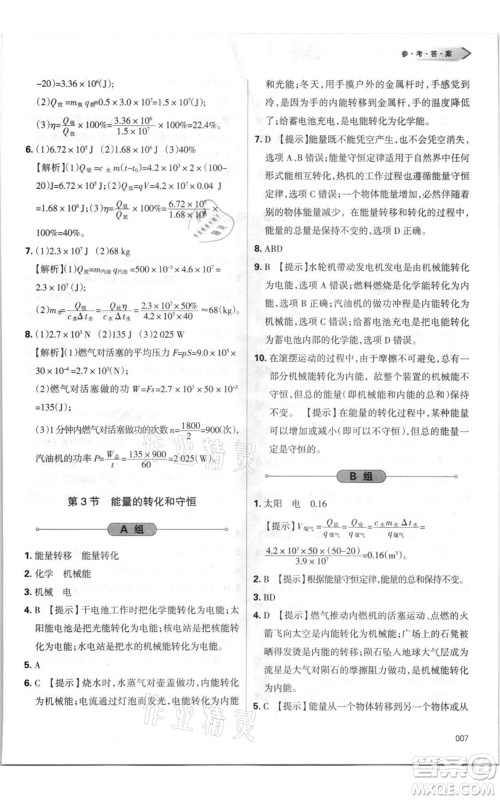 参·考·答·案
-20)=3.36×10⁶(J),
(2)Q放=m煤q煤=0.5×3.0×10⁷=1.5×10⁷(J),
(3)η=Q吸/Q放×100%=3.36×10⁶/1.5×10⁷×100%=22.4%。
6. (1)6.72×10⁵ J (2)1.68×10⁶ J (3)40%
[解析](1)Q吸=cm水(t-t₀)=4.2×10³×2×(100-
20)=6.72×10⁵(J),(2)Q放=qV=4.2×10⁷×0.04=
1.68×10⁶(J),(3)η=Q吸/Q放×100%=6.72×10⁵/1.68×10⁶×
100%=40%。
7. (1)2.3×10⁷ J (2)68 kg
[解析](1)Q放=m汽油q汽油=0.5×4.6×10⁷=2.3×10⁷(J),
(2)m水=Q吸/c水Δt水=Q放η/c水Δt水=2.3×10⁷×50%/4.2×10³×40≈68(kg)。
8. (1)900 J (2)2 025 W
[解析](1)燃气对活塞的平均压力F=pS=9.0×10⁵×
30×10⁻⁴=2.7×10³(N),
(2)燃气对活塞做的功 W=Fs=2.7×10³×50×10⁻³
=135(J),
(3)1分钟内燃气对活塞做功的次数n=1800/2=900(次),
汽油机的功率P=W总/t=135×900/60=2 025(W)。
第3节 能量的转化和守恒
A 组
1. 能量转移 能量转化
2. 化学 机械能
3. 机械 电
4. B [提示]干电池工作时把化学能转化为电能;太
阳能电池是光能转化为电能;核电站是将核能转化
为电能;水电站是将机械能转化为电能。
5. A
6. C [提示]烧水时,水蒸气对壶盖做功,内能转化
为机械能;电流通过灯泡而发光,电能转化为内能
和光能;冬天,用手摸户外的金属杆时,手的温度降
低了,手的内能转移到金属杆,金属杆的内能增加
了;给蓄电池充电,电能转化为化学能。
7. D [提示]能量既不能凭空产生,也不能凭空消失,
选项A、B错误;能量守恒定律是自然界中的基本定
律,在任何情况下都适用,热机的工作过程遵循能量
守恒定律,选项C错误;一个物体能量减少,必定有
别的物体能量增加,在能量的转移和转化的过程中,
能量的总量保持不变,选项D正确。
8. ABD
9. B [提示]水轮机带动发电机发电是由机械能转化
为电能,选项A错误;燃料燃烧是化学能转化为内
能,选项B正确;汽油机的做功冲程是内能转化为
机械能,选项C错误;给蓄电池充电是电能转化为
蓄电池内部的化学能,选项D错误。
10. 在滚摆运动的过程中,由于摩擦不可避免,因此会有
一部分机械能转化为内能,故整个装置的机械能不
守恒,但在这个过程中能量的总量是不变的,即能量
守恒。 [提示]在能量的转化过程中,某种能量可
能会增大或减小,但能量的总量是守恒的。
B 组
1. 太阳 电 0.16
[提示]V煤气=Q放/q煤气=Q吸/q煤气=c水m水Δt水/q煤气=
4.2×10³×50×(50-20)/4.0×10⁷≈0.16(m³)
2. B [提示]根据能量守恒定律,能量不能凭空产生。
3. BD
4. D [提示]燃气推动内燃机的活塞运动,点火后的火
箭飞向太空是内能转化为机械能;广场上的石凳被
太阳晒得烫手是内能的转移;陨石坠入地球大气层成为
流星是大气对陨石的摩擦阻力做功,使机械能转化
为内能。
5. C [提示]能量从一个物体转移到另一个物体时,
007
作业精灵